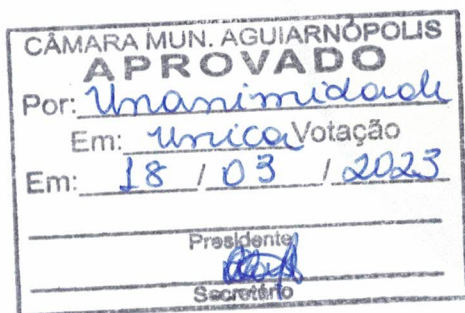 CÂMARA MUN. AGUIARNÓPOLIS
APROVADO
Por: Unanimidade
Em: Unica Votação
Em: 18 / 03 / 2023
Presidente
Secretário